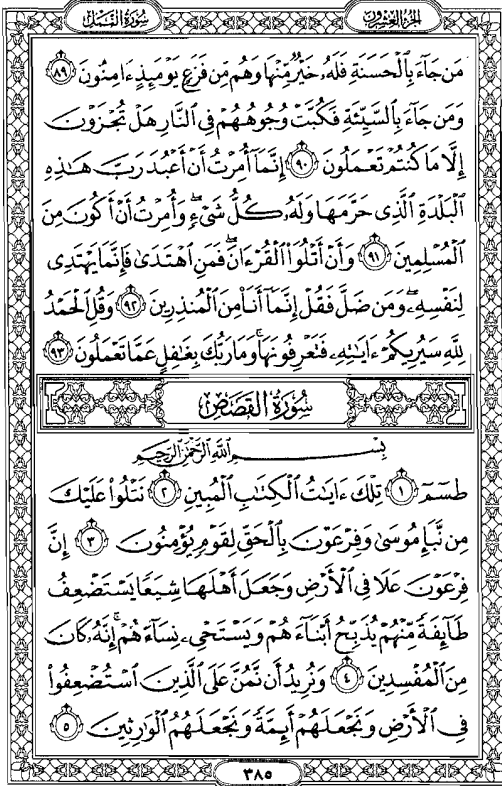 الجزء العشرون
سورة النمل
مَن جَآءَ بِٱلْحَسَنَةِ فَلَهُۥ خَيْرٌ مِّنْهَا وَهُم مِّن فَزَعٍ يَوْمَئِذٍ ءَامِنُونَ ٨٩
وَمَن جَآءَ بِٱلسَّيِّئَةِ فَكُبَّتْ وُجُوهُهُمْ فِى ٱلنَّارِ هَلْ تُجْزَوْنَ
إِلَّا مَا كُنتُمْ تَعْمَلُونَ ٩٠ إِنَّمَآ أُمِرْتُ أَنْ أَعْبُدَ رَبَّ هَـٰذِهِ
ٱلْبَلْدَةِ ٱلَّذِى حَرَّمَهَا وَلَهُۥ كُلُّ شَىْءٍۖ وَأُمِرْتُ أَنْ أَكُونَ مِنَ
ٱلْمُسْلِمِينَ ٩١ وَأَنْ أَتْلُوَا۟ ٱلْقُرْءَانَۖ فَمَنِ ٱهْتَدَىٰ فَإِنَّمَا يَهْتَدِى
لِنَفْسِهِۦۖ وَمَن ضَلَّ فَقُلْ إِنَّمَآ أَنَا۠ مِنَ ٱلْمُنذِرِينَ ٩٢ وَقُلِ ٱلْحَمْدُ
لِلَّهِ سَيُرِيكُمْ ءَايَـٰتِهِۦ فَتَعْرِفُونَهَاۚ وَمَا رَبُّكَ بِغَـٰفِلٍ عَمَّا تَعْمَلُونَ ٩٣
سورة القصص
بِسْمِ ٱللَّهِ ٱلرَّحْمَـٰنِ ٱلرَّحِيمِ
طسٓمٓ ١ تِلْكَ ءَايَـٰتُ ٱلْكِتَـٰبِ ٱلْمُبِينِ ٢ نَتْلُوا۟ عَلَيْكَ
مِن نَّبَإِ مُوسَىٰ وَفِرْعَوْنَ بِٱلْحَقِّ لِقَوْمٍ يُؤْمِنُونَ ٣ إِنَّ
فِرْعَوْنَ عَلَا فِى ٱلْأَرْضِ وَجَعَلَ أَهْلَهَا شِيَعًا يَسْتَضْعِفُ
طَآئِفَةً مِّنْهُمْ يُذَبِّحُ أَبْنَآءَهُمْ وَيَسْتَحْىِۦ نِسَآءَهُمْۚ إِنَّهُۥ كَانَ
مِنَ ٱلْمُفْسِدِينَ ٤ وَنُرِيدُ أَن نَّمُنَّ عَلَى ٱلَّذِينَ ٱسْتُضْعِفُوا۟
فِى ٱلْأَرْضِ وَنَجْعَلَهُمْ أَئِمَّةً وَنَجْعَلَهُمُ ٱلْوَٰرِثِينَ ٥
٣٨٥